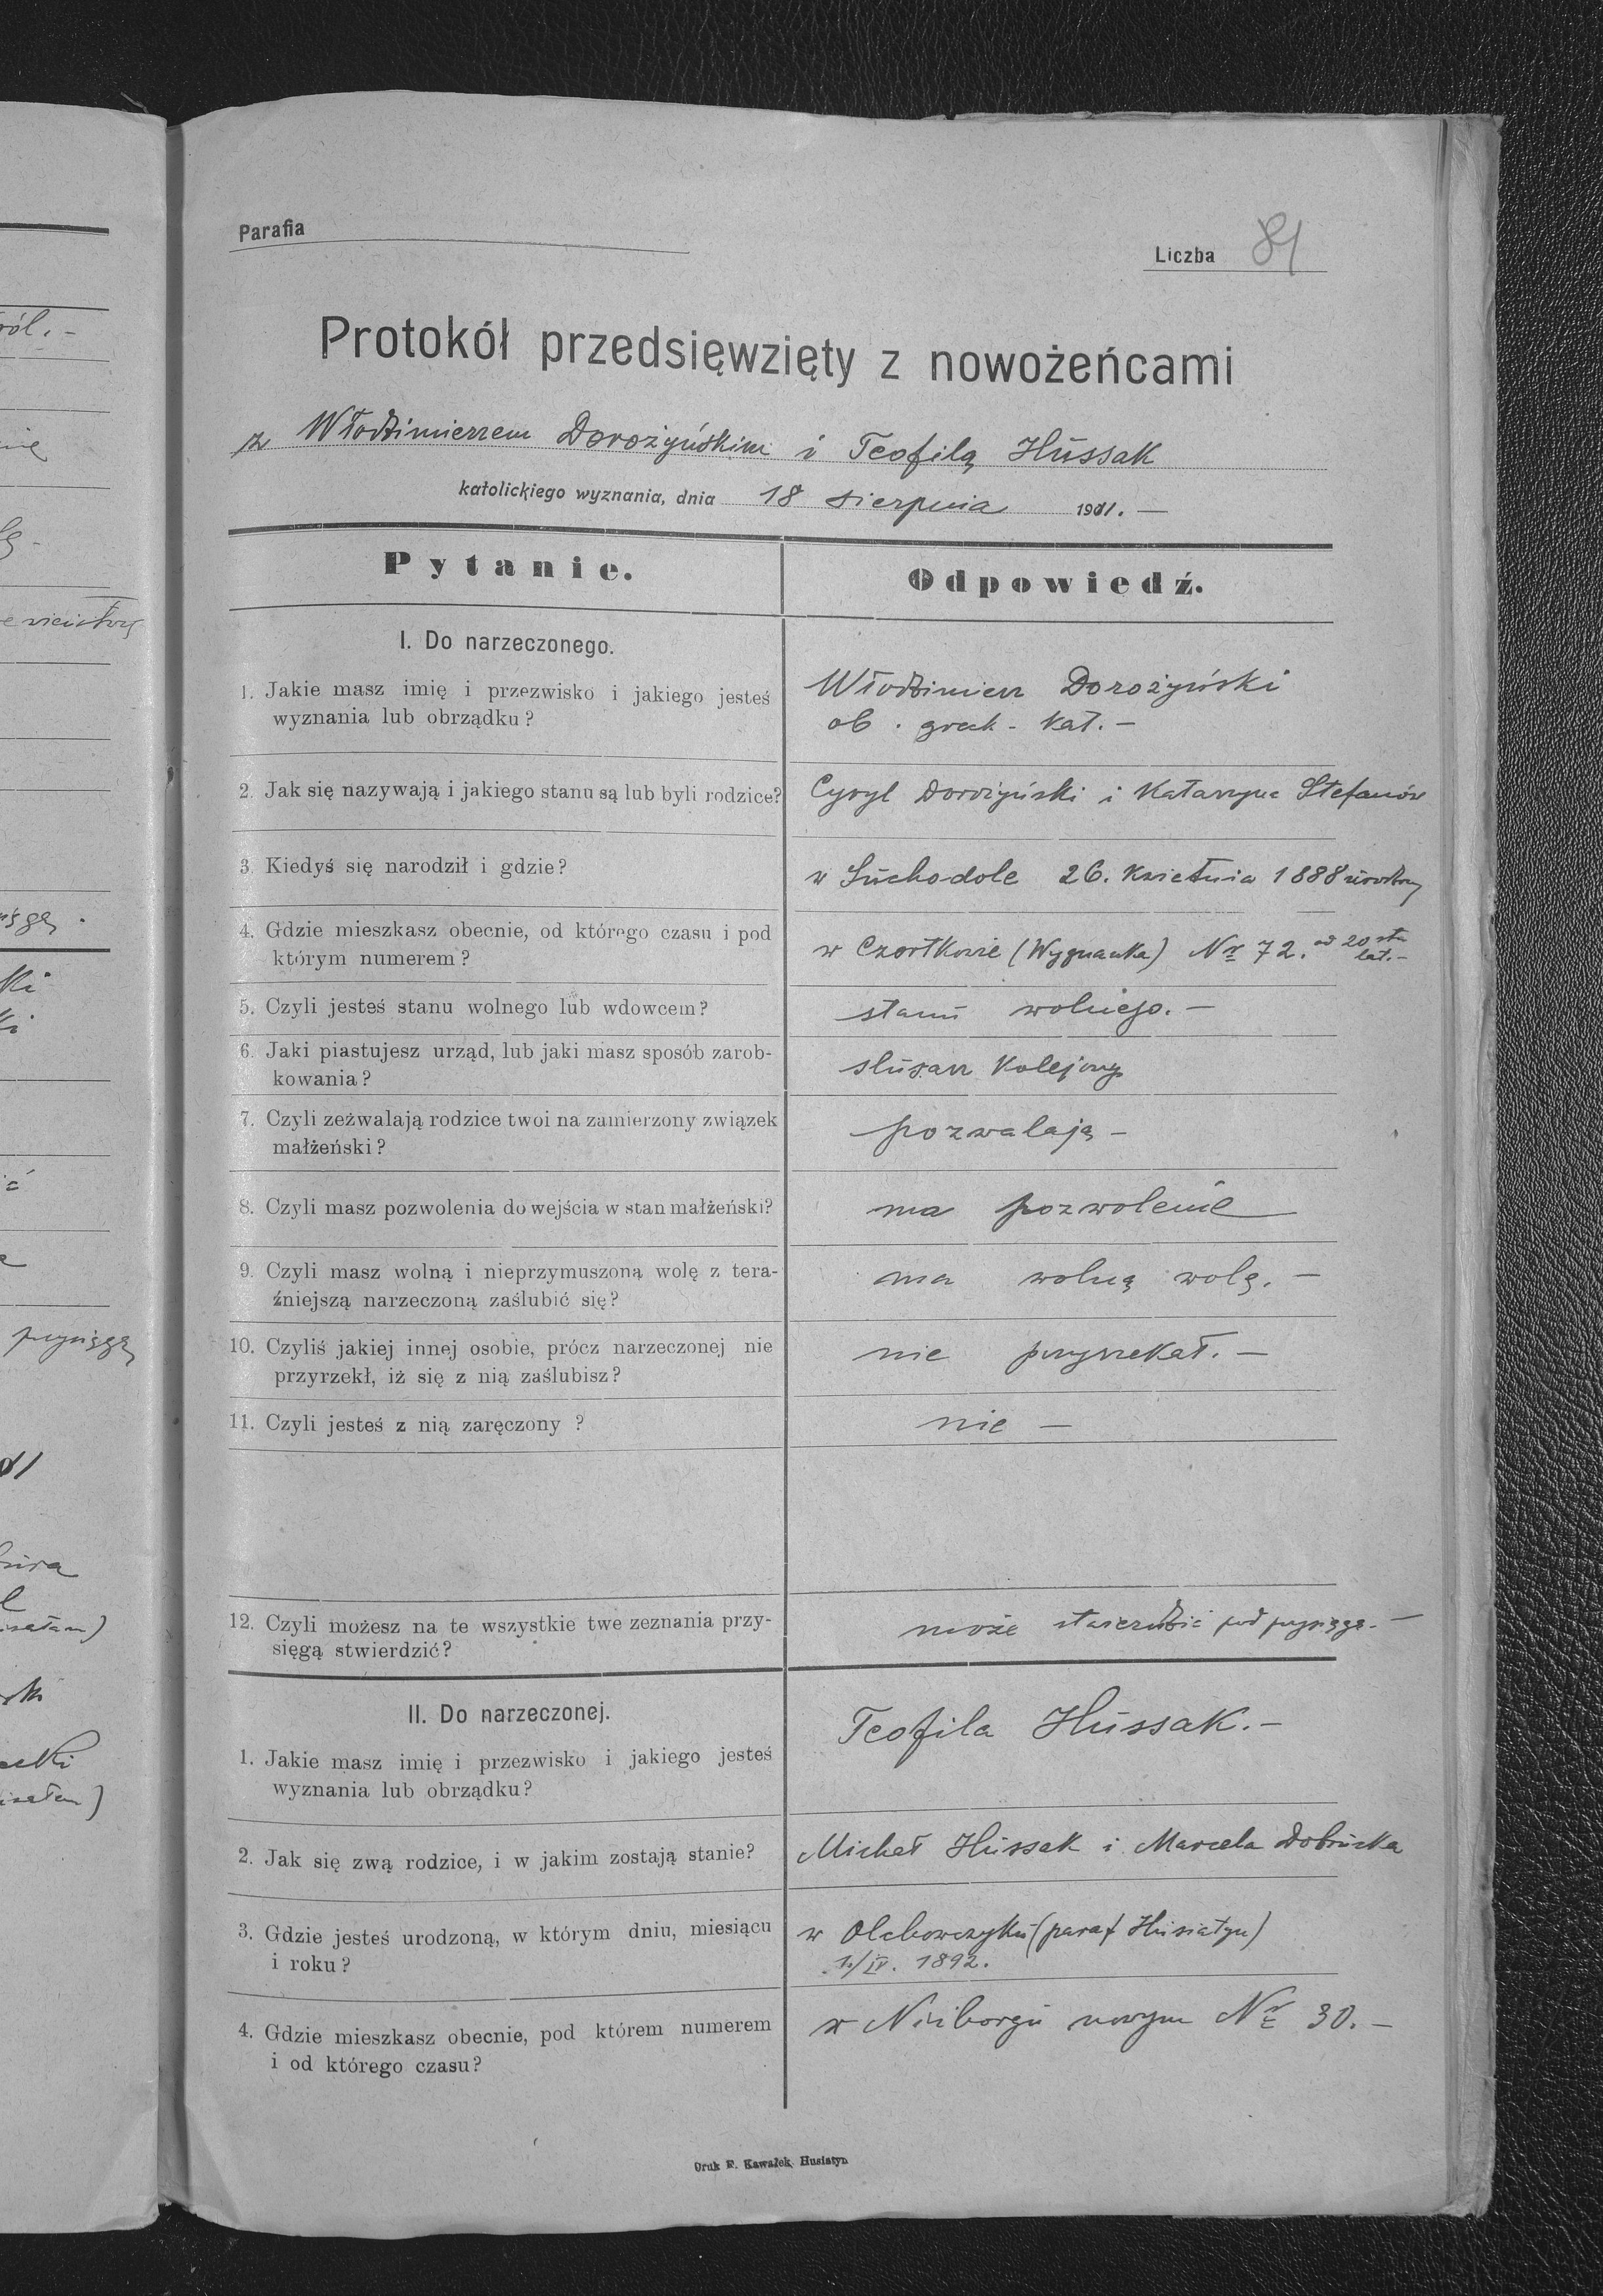 ról. -
nię
lę -
e vicictwę
ki
pod
przysięgą
Parafia
Liczba 81
Protokół przedsięwzięty z nowożeńcami
z Włodzimierzem Dorożyńskim i Teofilą Hussak
katolickiego wyznania, dnia 18 sierpnia 1911. —
Pytanie.
Odpowiedź.
I. Do narzeczonego.
1. Jakie masz imię i przezwisko i jakiego jesteś
wyznania lub obrządku?
Włodzimierz Dorożyński
ob. greck - kat. -
2. Jak się nazywają i jakiego stanu są lub byli rodzice?
Cyryl Dorożyński i Katarzyna Stefanów
3. Kiedyś się narodził i gdzie?
w Suchodole 26. Kwietnia 1888 urodzony
4. Gdzie mieszkasz obecnie, od którego czasu i pod
którym numerem?
w Czortkowie (Wygnanka) Nr 72. od 20stu
lat. -
5. Czyli jesteś stanu wolnego lub wdowcem?
stanu wolnego. -
6. Jaki piastujesz urząd, lub jaki masz sposób zarob-
kowania?
slusarz Kolejowy
7. Czyli zeżwalają rodzice twoi na zamierzony związek
małżeński?
pozwalają -
8. Czyli masz pozwolenia do wejścia w stan małżeński?
ma pozwolenie
9. Czyli masz wolną i nieprzymuszoną wolę z tera-
źniejszą narzeczoną zaślubić się?
ma wolną wolę. -
10. Czyliś jakiej innej osobie, prócz narzeczonej nie
przyrzekł, iż się z nią zaślubisz?
nie przyrzekał. -
11. Czyli jesteś z nią zaręczony ?
nie -
12. Czyli możesz na te wszystkie twe zeznania przy-
sięgą stwierdzić?
może stwierdzić pod przysięgą. -
II. Do narzeczonej.
1. Jakie masz imię i przezwisko i jakiego jesteś
wyznania lub obrządku?
Teofila Hussak. -
2. Jak się zwą rodzice, i w jakim zostają stanie?
Michał Hussak i Marcela Dobrucka
3. Gdzie jesteś urodzoną, w którym dniu, miesiącu
i roku?
w Olchowczyku (paraf Husiatyn)
1./IV. 1892.
4. Gdzie mieszkasz obecnie, pod którem numerem
i od którego czasu?
w Niżborgu nowym Nr 30. -
Druk F. Kawałek Husiatyn